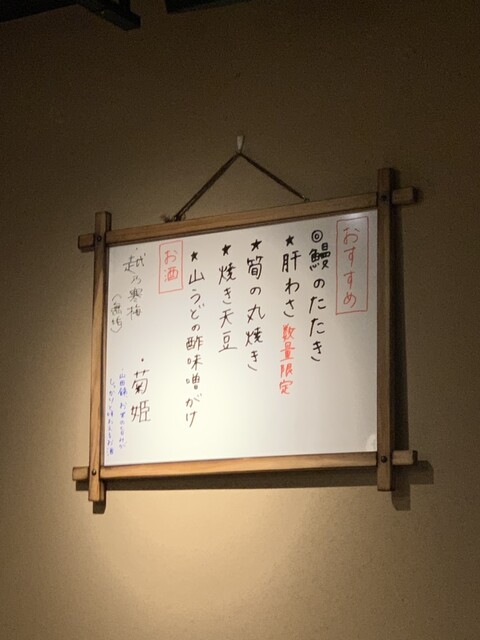 おすすめ
◎鰻のたたき
★肝わさ 数量限定
★筍の丸焼き
★焼き天豆
★山うどの酢味噌がけ
お酒
・越乃寒梅
・菊姫